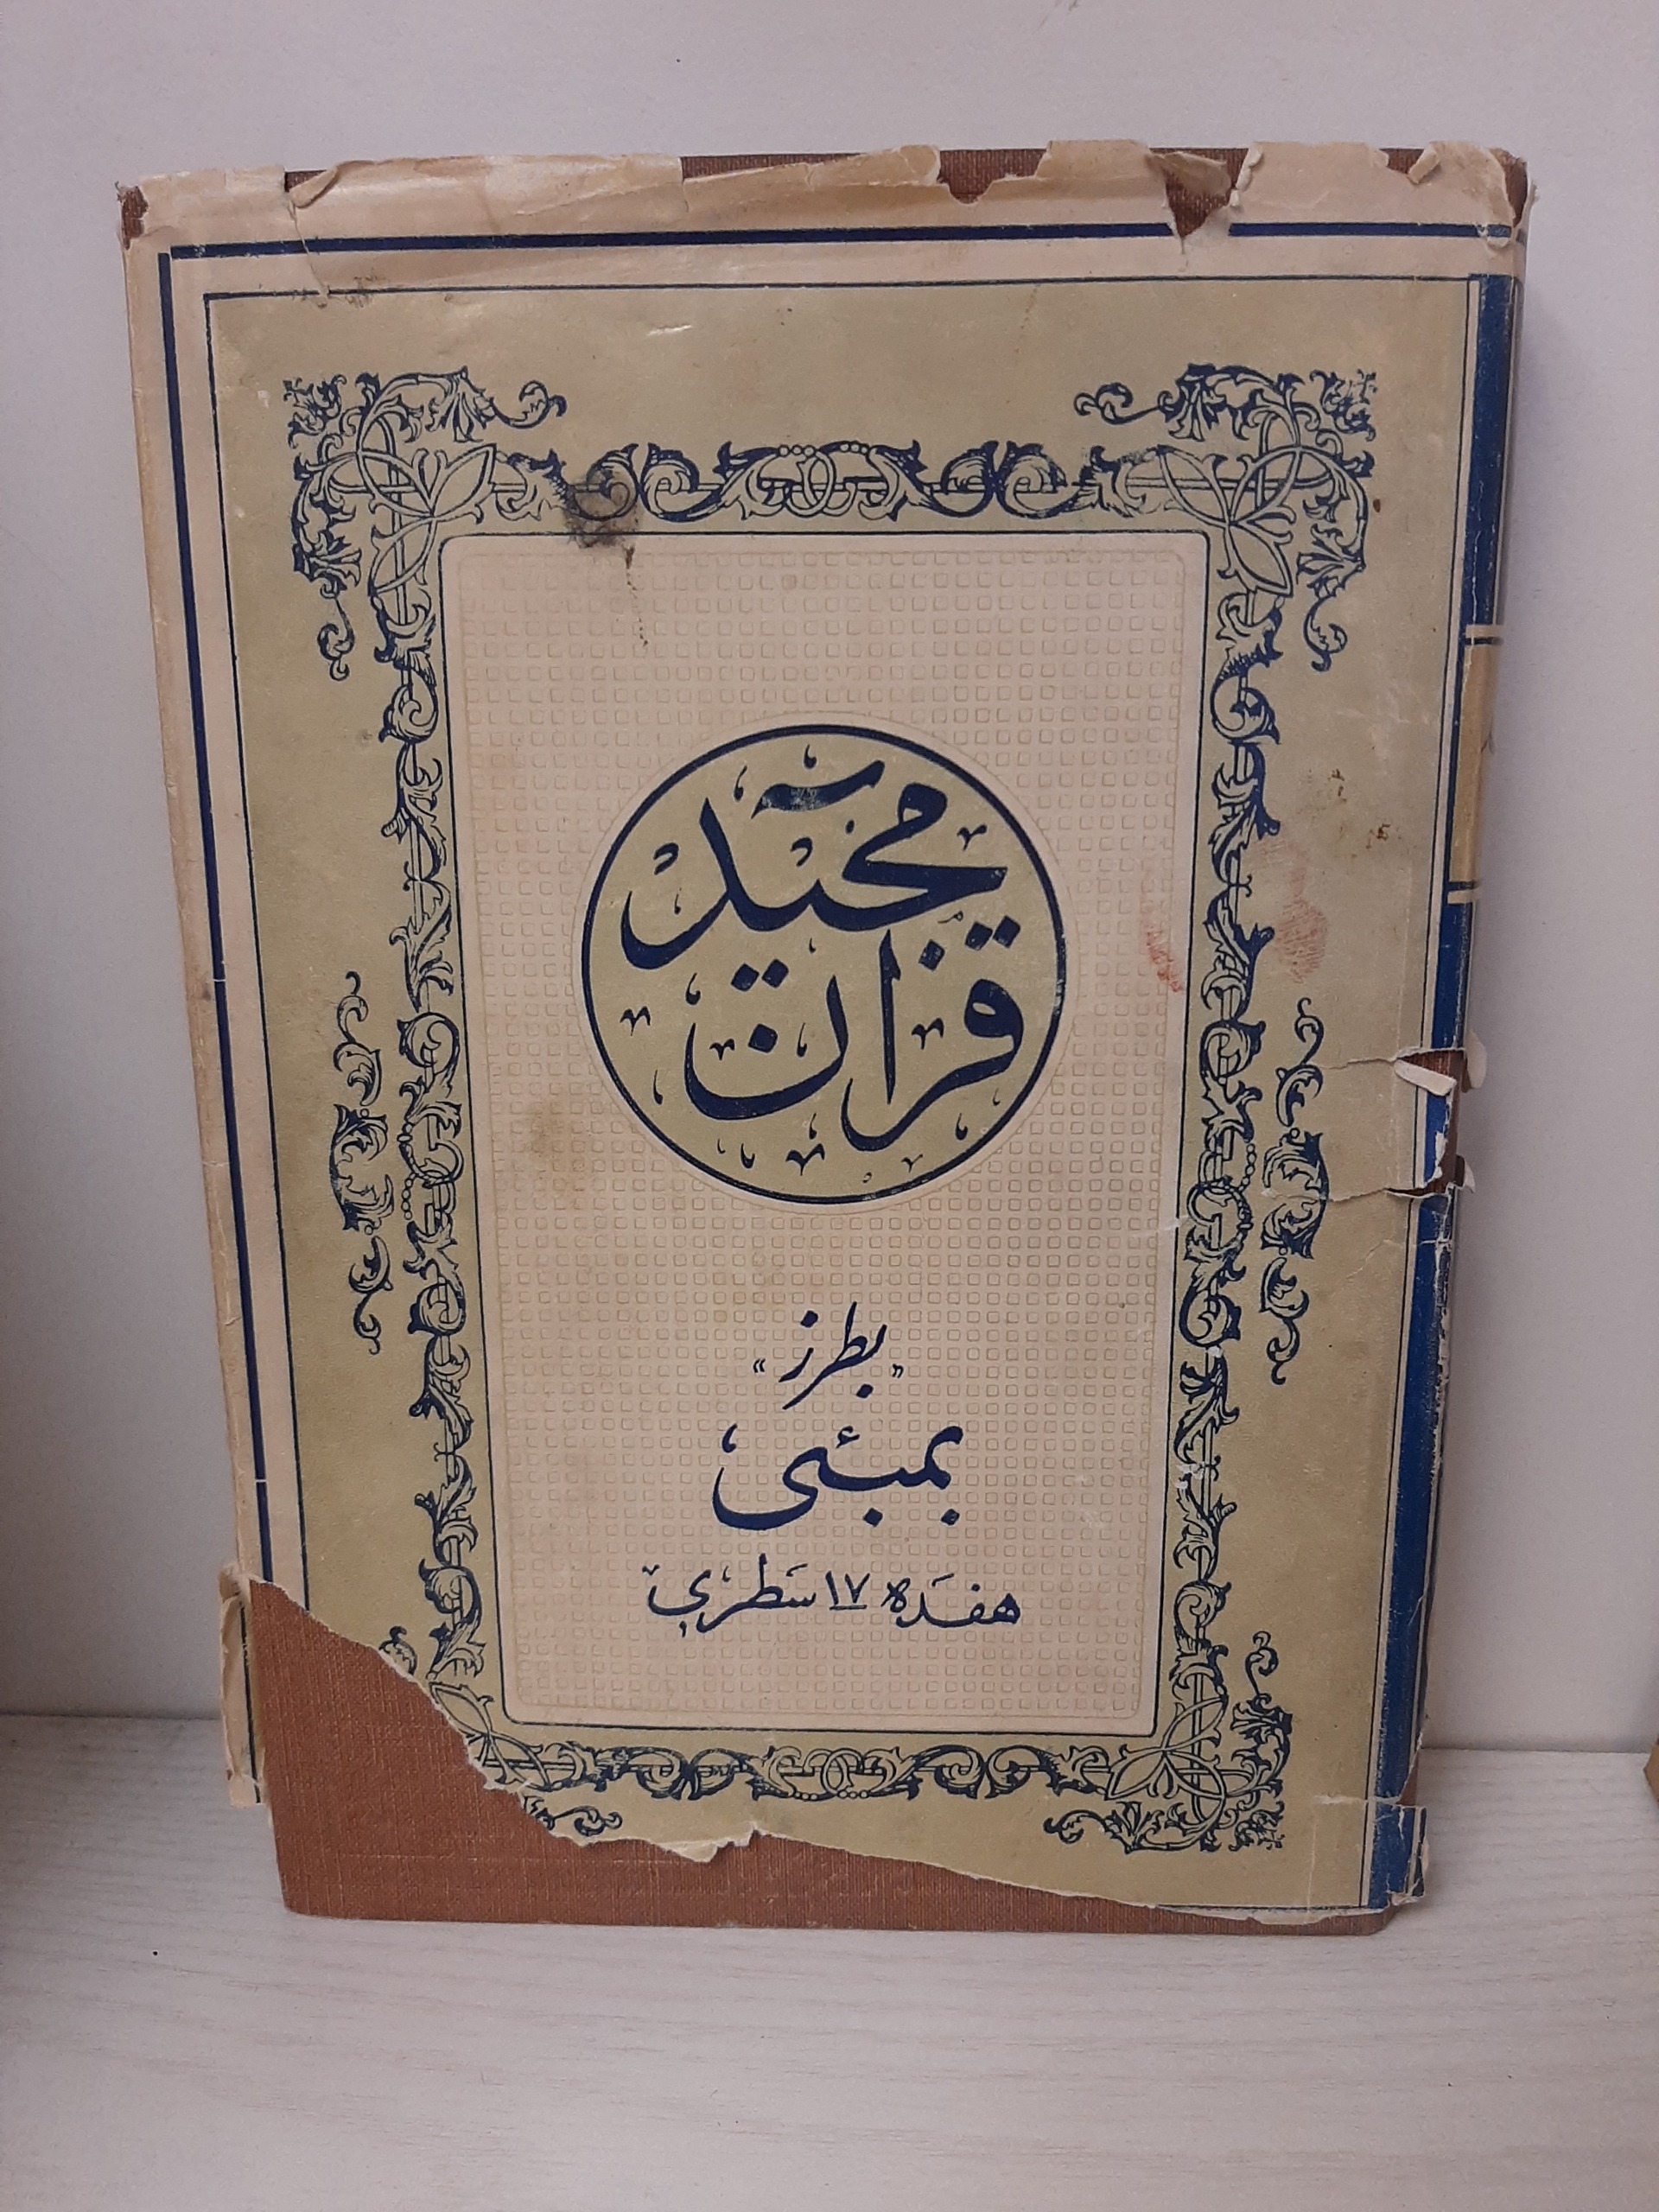 قرآن
مجيد
"بطرز"
بمبئى
هفده ١٧ سطري